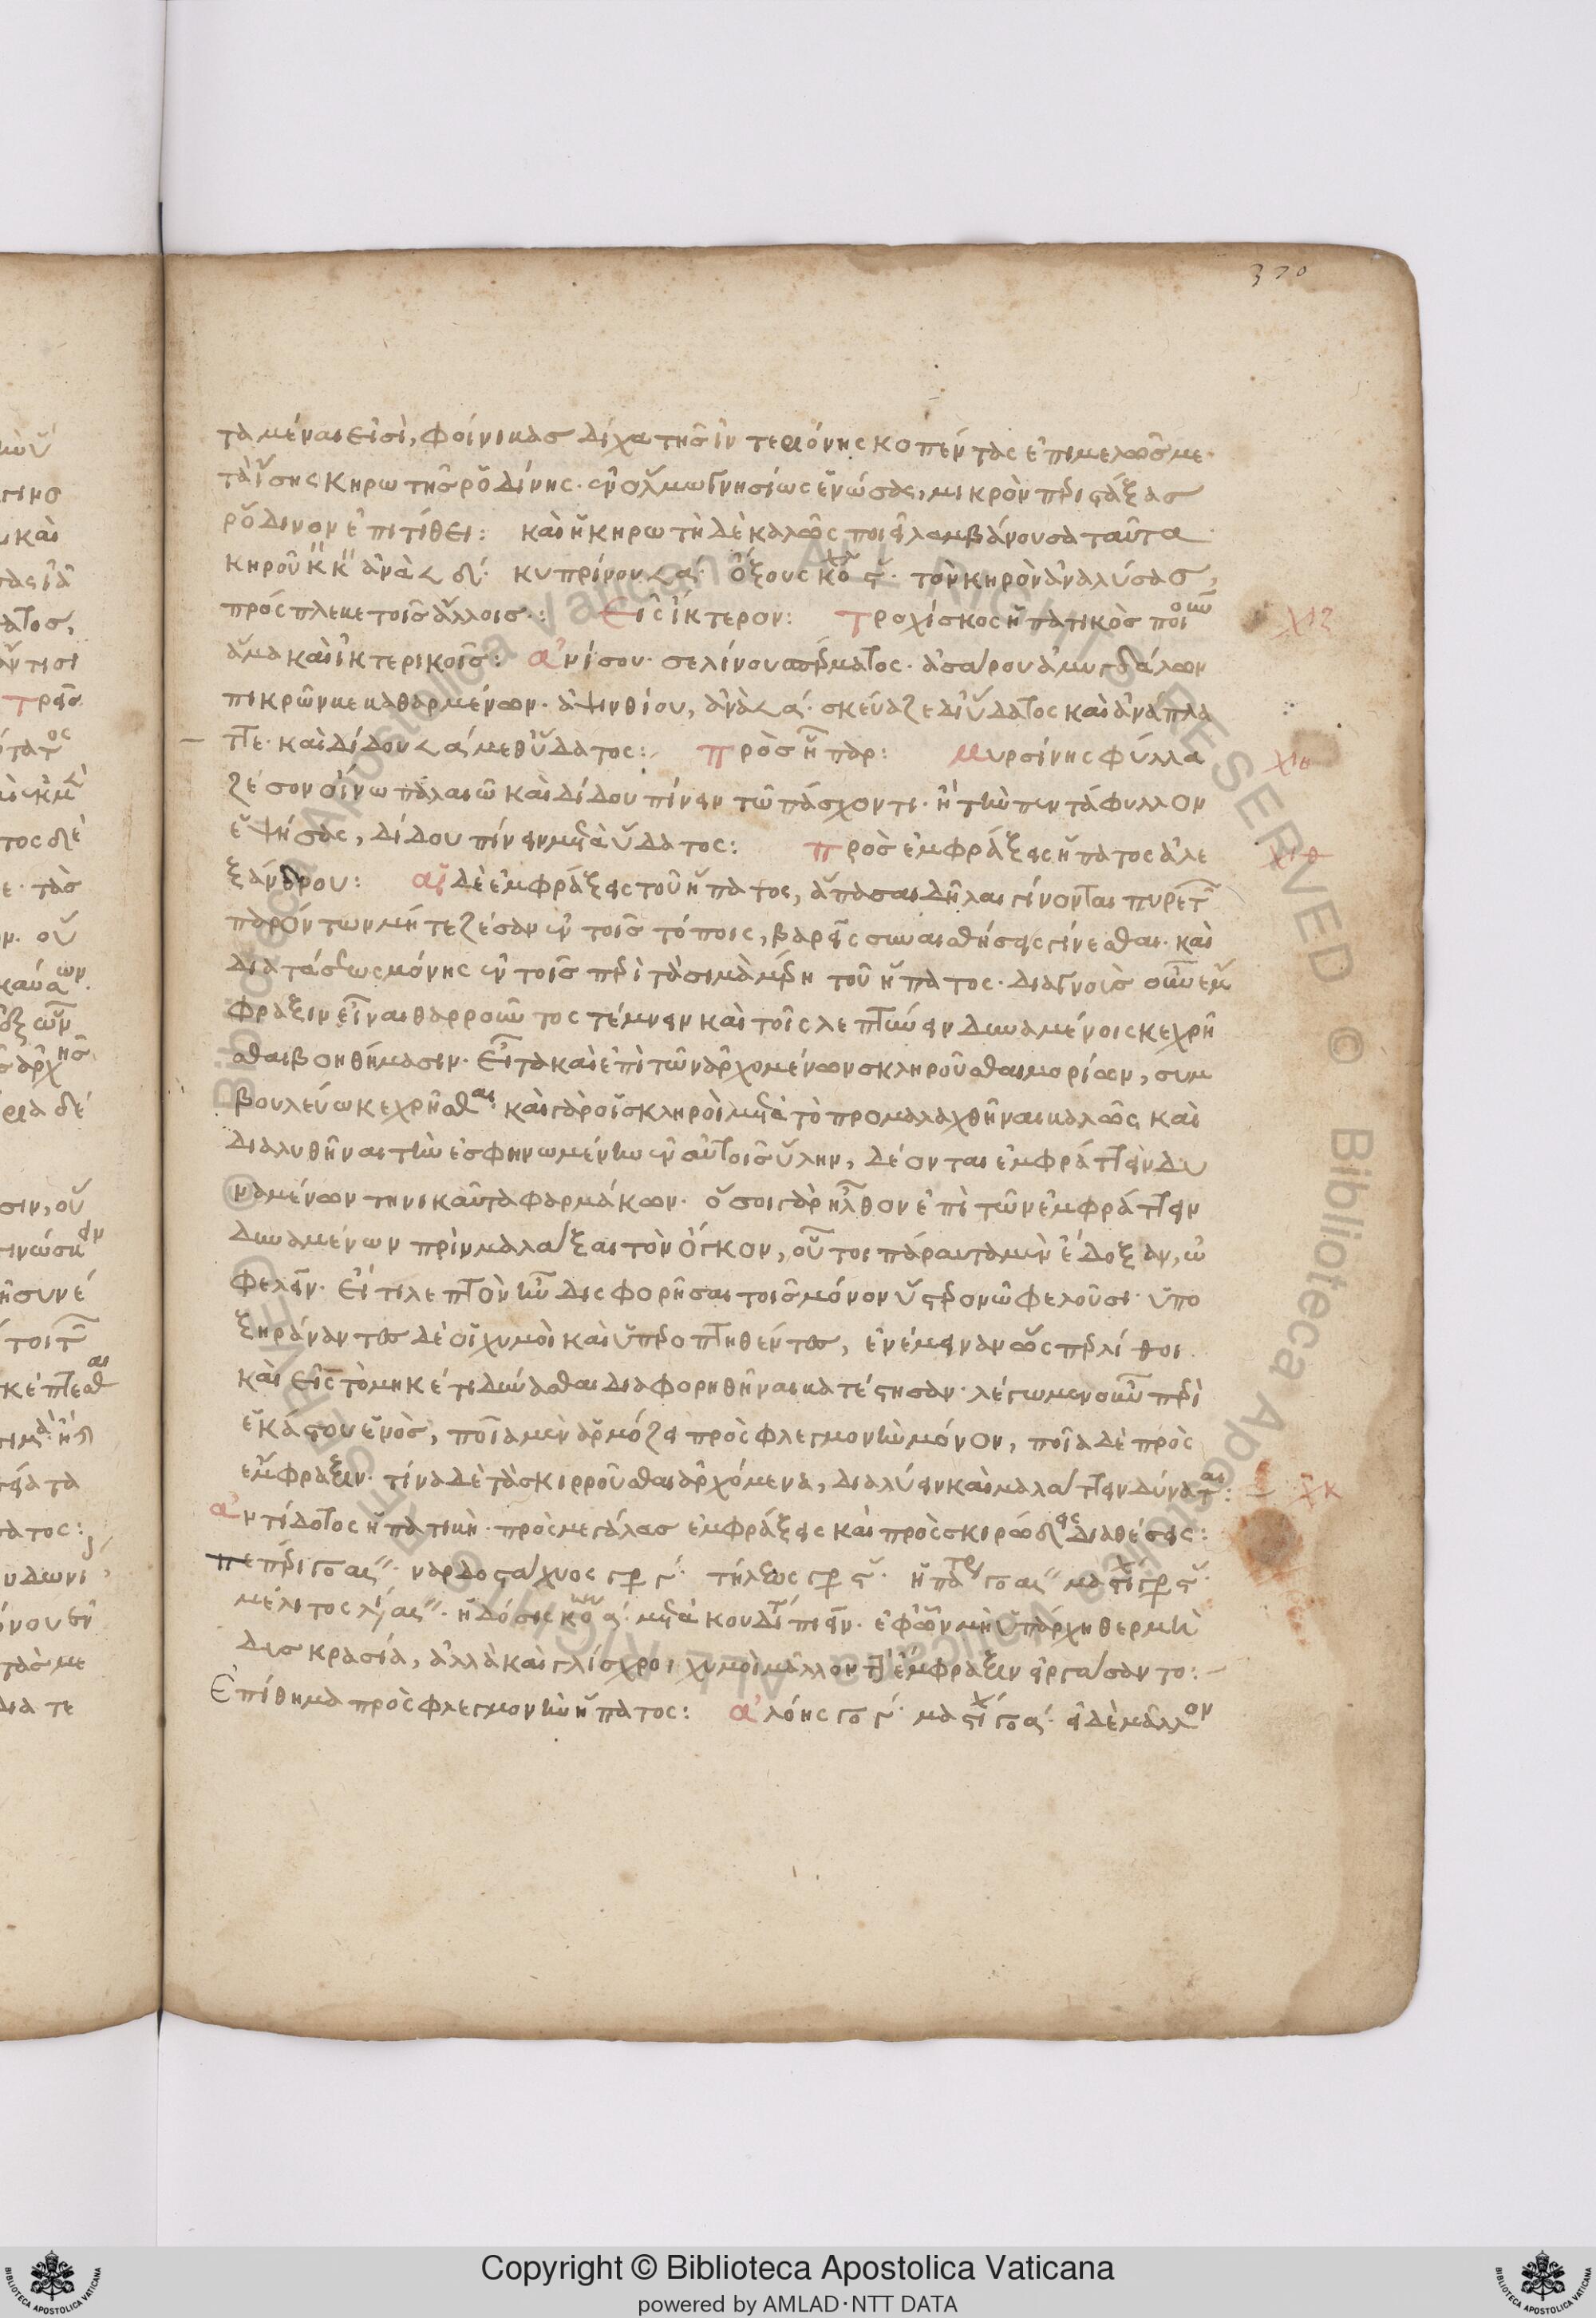 370
τα μέναι εἰσὶ, φοίνικας δίχα τῆς ἐντεριόνης κοπέντας ἐπιμελῶς με
τὰ ἴσης κηρωτῆς ῥοδίνης. ἐν ὅλμω γνησίως ἑνώσας, μικρὸν πρισάξας
ῥόδινον ἐπιτίθει: καὶ ἡ κηρωτὴ δὲ καλῶς ποιεῖ λαμβάνουσα ταῦτα
κηροῦ κ κ ἀνὰ δ. κυπρίνου α. ὄξους κο ς. τὸν κηρὸν ἀναλύσας,
πρόσπλεκε τοῖς ἄλλοις: εἰς ἴκτερον: τροχίσκος ἡπατικὸς ποι
ἅμα καὶ ἰκτερικοῖς: ἀνίσου. σελίνου σπρματος. ἀσάρου ἀμυγδάλων
πικρῶν κεκαθαρμένων. ἀψινθίου, ἀνὰ α. σκεύαζε δι' ὕδατος καὶ ἀνάπλα
ττε. καὶ δίδου α μεθ' ὕδατος: πρὸς ἧπαρ: μυρσίνης φύλλα
ζέσον οἴνω παλαιῶ καὶ δίδου πίνειν τῶ πάσχοντι. ἢ τὴν πεντάφυλλον
ἑψήσας, δίδου πίνειν μετὰ ὕδατος: πρὸς ἐμφράξεις ἥπατος ἀλε
ξάνδρου: αἱ δὲ ἐμφράξεις τοῦ ἥπατος, ἅπασαι δῆλαι γίνονται πυρετ
παρόντων μήτε ζέσαν ἐν τοῖς τόποις, βαρείας συναισθήσεις γίνεσθαι. καὶ
διατάσεως μόνης ἐν τοῖς πρὶ τὰ σιμὰ μρη τοῦ ἥπατος. διαγνοὺς οὖν ἔμ
φραξιν εἶναι θαρροῦντος τέμνειν καὶ τοῖς λεπτύνειν δυναμένοις κεχρῆ
σθαι βοηθήμασιν. εἶτα καὶ ἐπὶ τῶν ἀρχομένων σκληροῦσθαι μορίων, συμ
βουλεύω κεχρῆσθαι. καὶ γὰρ οἱ σκληροὶ μετὰ τὸ προμαλαχθῆναι καλῶς καὶ
διαλυθῆναι τὴν ἐσφηνωμένην ἐν αὐτοῖς ὕλην, δέονται ἐμφράττειν δυ
ναμένων τηνικαῦτα φαρμάκων. ὅσοι γὰρ ἦλθον ἐπὶ τῶν ἐμφράττειν
δυναμένων πρὶν μαλάξαι τὸν ὄγκον, οὗτοι πάραυτα μὲν ἔδοξαν, ὠ
φελεῖν. εἴ τι λεπτὸν ἦν διεφορῆσαι τοῖς μόνον ὕστρον ὠφελοῦσι. ὑπο
ξηράναντες δὲ οἱ χυμοὶ καὶ ὑπροπτηθέντες, ἐνέμειναν ὥσπρ λίθοι
καὶ εἰς τὸ μηκέτι δύνασθαι διαφορηθῆναι κατέστησαν. λέγωμεν οὖν πρὶ
ἑκάστου ἑνὸς, ποῖα μὲν ἁρμόζει πρὸς φλεγμονὴν μόνον, ποῖα δὲ πρὸς
ἔμφραξιν. τίνα δὲ τὰ σκιρροῦσθαι ἀρχόμενα, διαλύειν καὶ μαλάττειν δύναται:
ἀντίδοτος ἡπατικὴ. πρὸς μεγάλας ἐμφράξεις καὶ πρὸς σκιρώδεις διαθέσεις:
μέλιτος λι ας. ἡ δόσις κο α. μετὰ κονδίτ πιεῖν. ἐφ' ὧν μὴ ὑπάρχη θερμὴ
δισκρασία, ἀλλὰ καὶ γλίσχροι χυμοὶ μᾶλλον τὴν ἔμφραξιν εἰργάσαντο:
Ἐπίθημα πρὸς φλεγμονὴν ἥπατος: ἀλόης γο γ. μαστίχ γο α. εἰ δὲ μᾶλλον
Copyright © Biblioteca Apostolica Vaticana
powered by AMLAD·NTT DATA